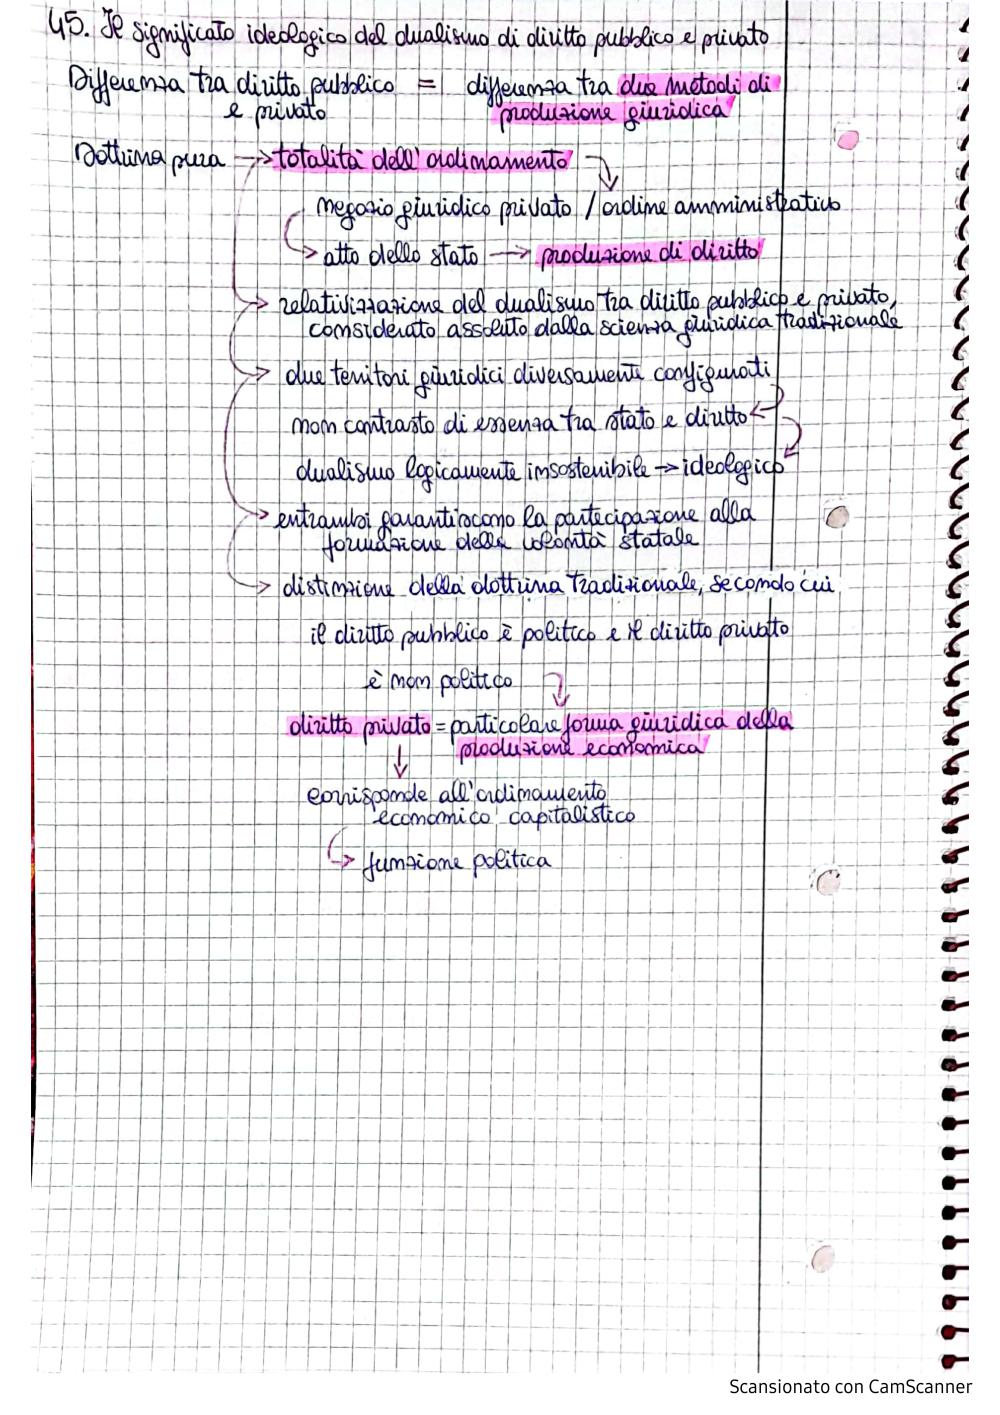 45. Il significato ideologico del dualismo di diritto pubblico e privato
Differenza tra diritto pubblico = differenza tra due metodi di
e privato produzione giuridica
Dottrina pura → totalità dell'ordinamento
negozio giuridico privato / ordine amministrativo
→ atto dello stato → produzione di diritto
→ relativizzazione del dualismo tra diritto pubblico e privato,
considerato assoluto dalla scienza giuridica tradizionale
→ due territori giuridici diversamente configurati
non contrasto di essenza tra stato e diritto ←
dualismo logicamente insostenibile → ideologico
→ entrambi garantiscono la partecipazione alla
formazione della volontà statale
→ distinzione della dottrina tradizionale, secondo cui
il diritto pubblico è politico e il diritto privato
è non politico
diritto privato = particolare forma giuridica della
produzione economica
↓
corrisponde all'ordinamento
economico capitalistico
→ funzione politica
Scansionato con CamScanner